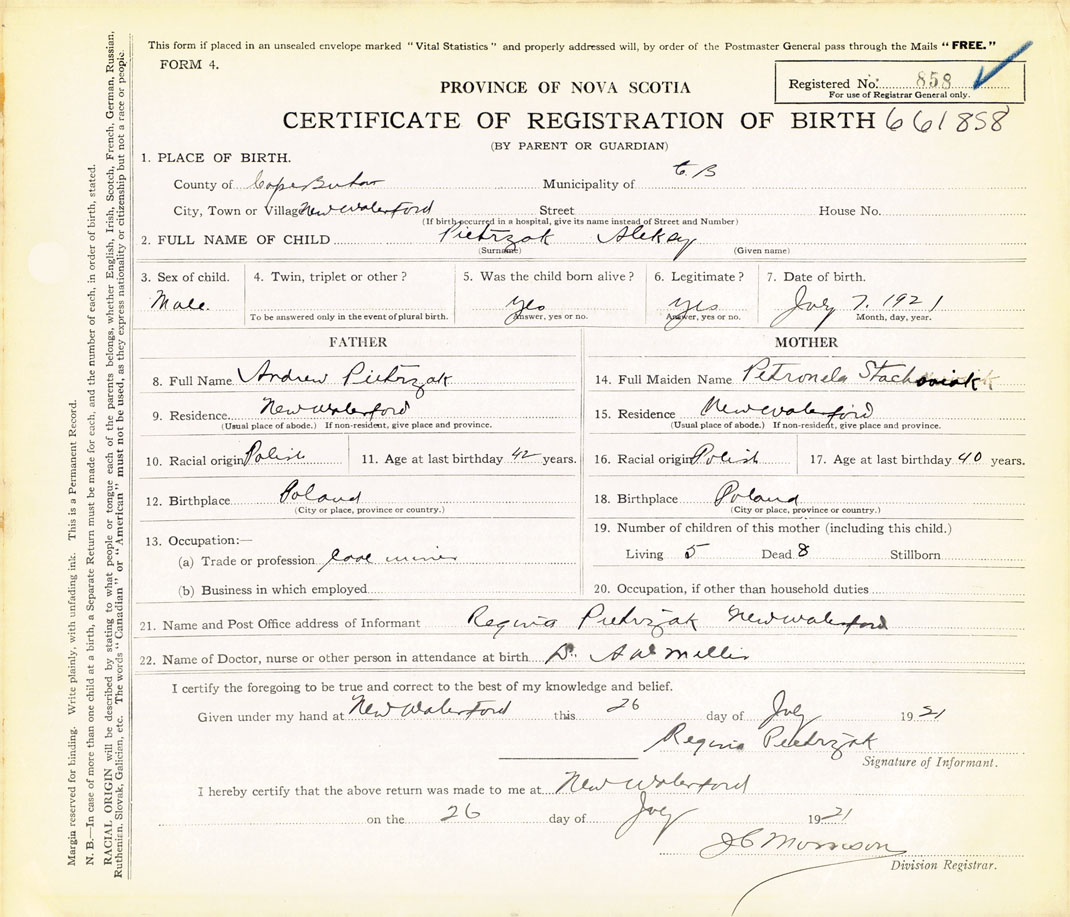 This form if placed in an unsealed envelope marked "Vital Statistics" and properly addressed will, by order of the Postmaster General pass through the Mails "FREE."
FORM 4.
PROVINCE OF NOVA SCOTIA
Registered No. 858
For use of Registrar General only.
CERTIFICATE OF REGISTRATION OF BIRTH 661858
(BY PARENT OR GUARDIAN)
1. PLACE OF BIRTH.
County of Cape Breton Municipality of C B
City, Town or Village New Waterford Street House No.
(If birth occurred in a hospital, give its name instead of Street and Number)
2. FULL NAME OF CHILD Pietrzak
(Surname) (Given name)
3. Sex of child. 4. Twin, triplet or other? 5. Was the child born alive? 6. Legitimate? 7. Date of birth.
Male. yes yes July 7. 1921
To be answered only in the event of plural birth. Answer, yes or no. Answer, yes or no. Month, day, year.
FATHER
8. Full Name Andrew Pietrzak
9. Residence New Waterford
(Usual place of abode.) If non-resident, give place and province.
10. Racial origin Polish 11. Age at last birthday 42 years.
12. Birthplace Poland
(City or place, province or country.)
13. Occupation:—
(a) Trade or profession Coal miner
(b) Business in which employed
MOTHER
14. Full Maiden Name Petronela
15. Residence New Waterford
(Usual place of abode.) If non-resident, give place and province.
16. Racial origin Polish 17. Age at last birthday 40 years.
18. Birthplace Poland
(City or place, province or country.)
19. Number of children of this mother (including this child.)
Living 5 Dead 8 Stillborn
20. Occupation, if other than household duties
21. Name and Post Office address of Informant Regina Pietrzak New Waterford
22. Name of Doctor, nurse or other person in attendance at birth Dr.
I certify the foregoing to be true and correct to the best of my knowledge and belief.
Given under my hand at New Waterford this 26 day of July 1921
Regina Pietrzak
Signature of Informant.
I hereby certify that the above return was made to me at New Waterford
on the 26 day of July 1921
J C Morrison
Division Registrar.
Margin reserved for binding. Write plainly, with unfading ink. This is a Permanent Record.
N. B.—In case of more than one child at a birth, a Separate Return must be made for each, and the number of each, in order of birth, stated.
RACIAL ORIGIN will be described by stating to what people or tongue each of the parents belongs, whether English, Irish, Scotch, French, German, Russian,
Ruthenian, Slovak, Galician, etc. The words "Canadian" or "American" must not be used, as they express nationality or citizenship but not a race or people.